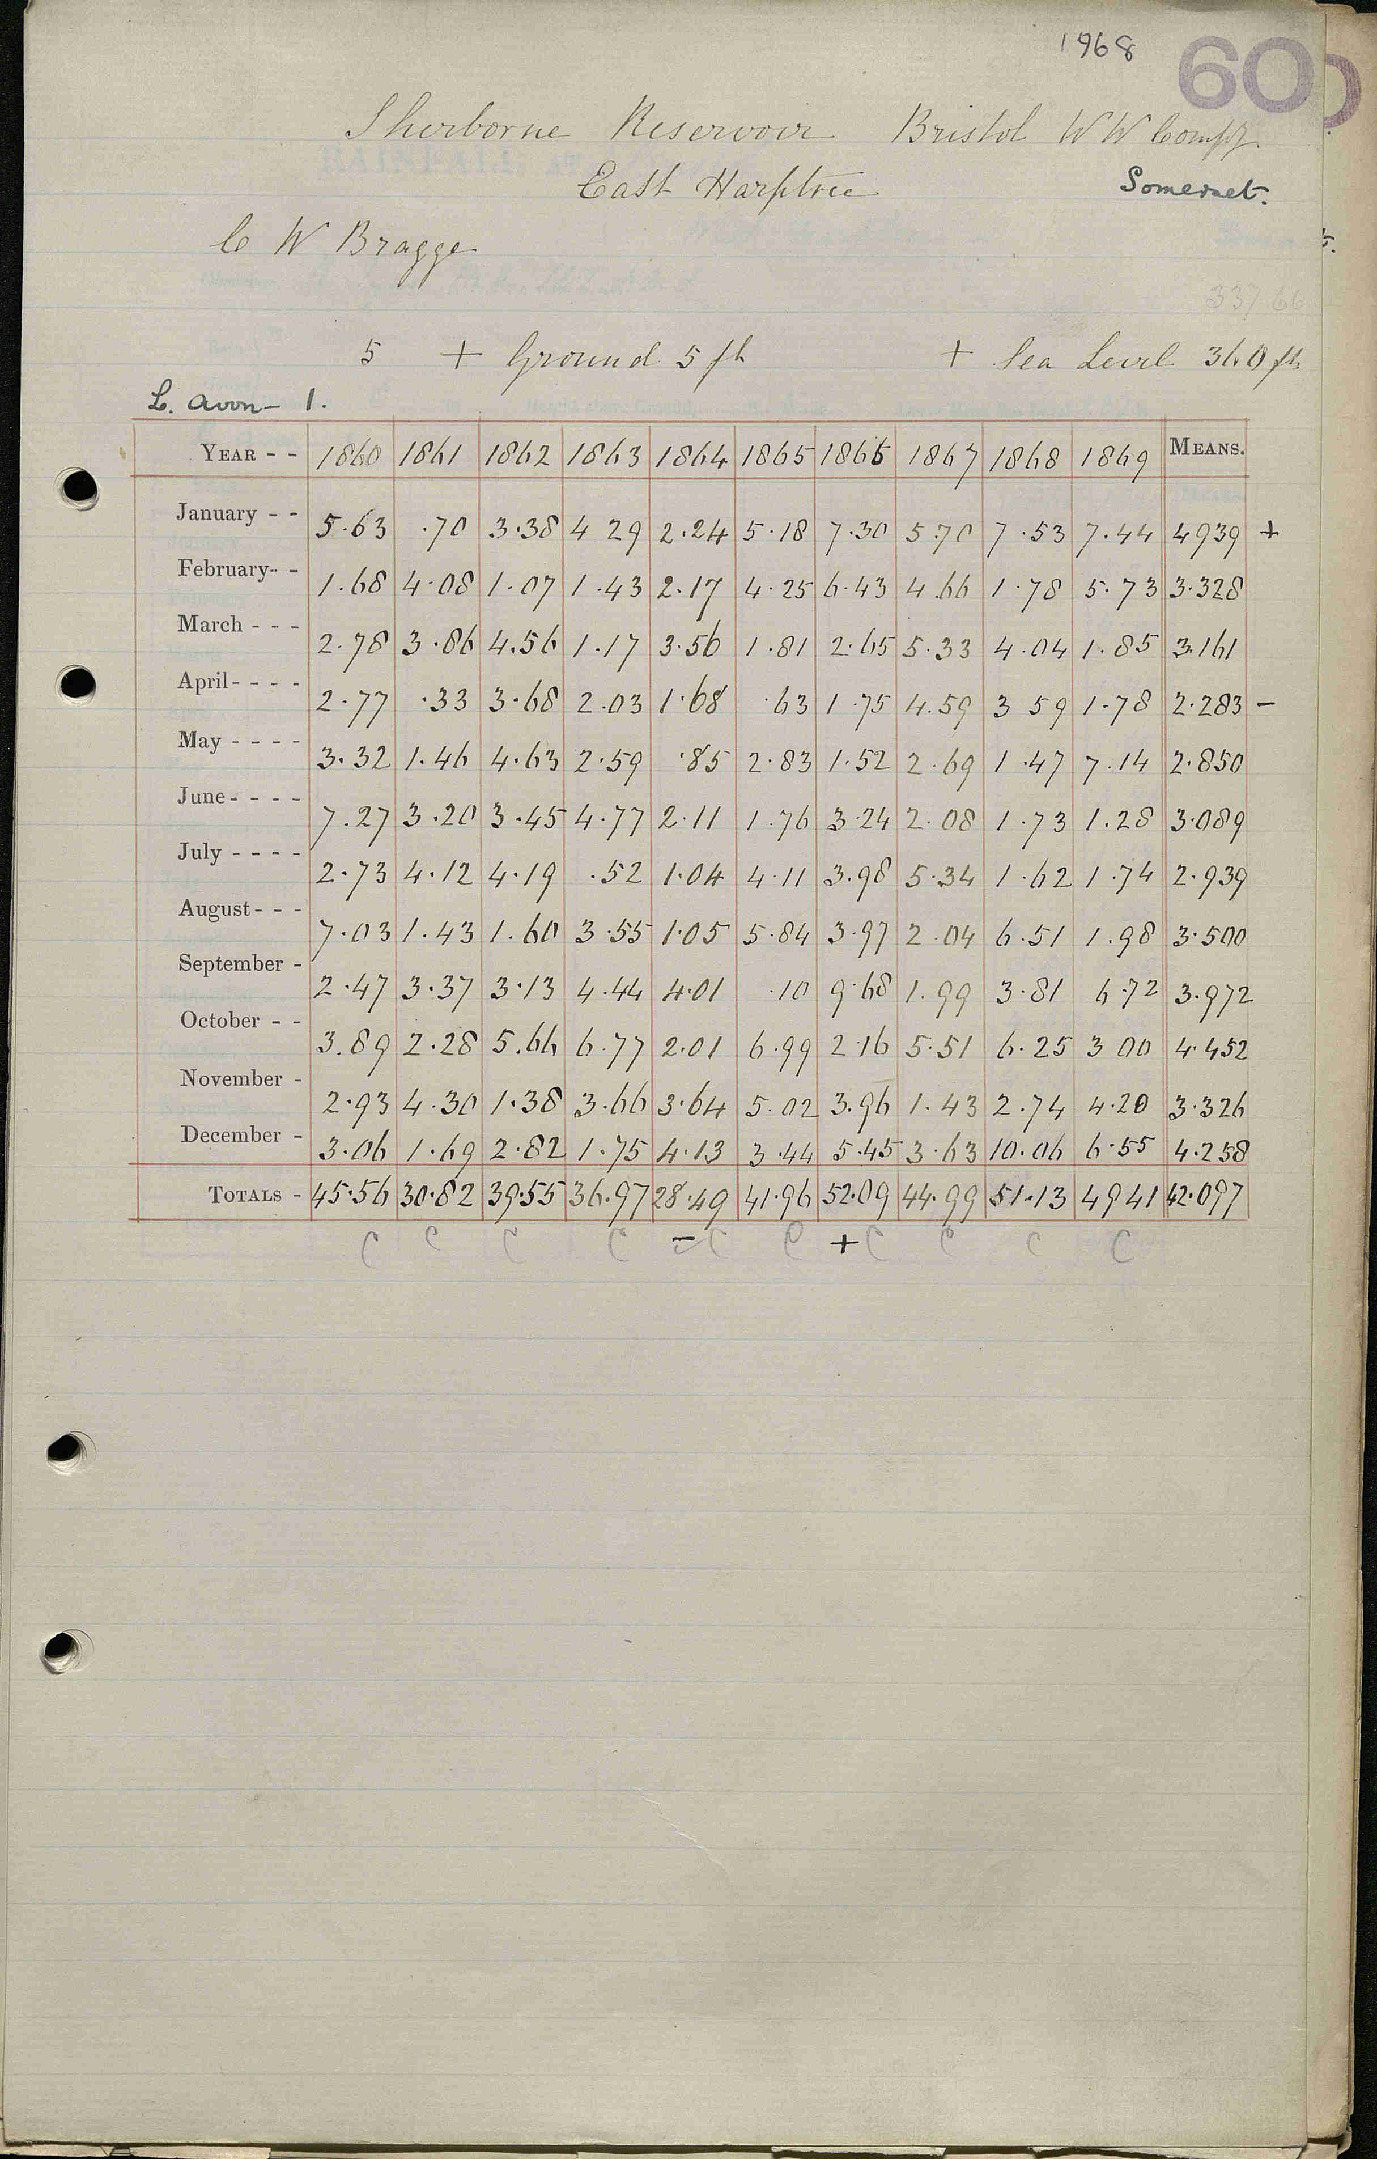 1968 60
Sherborne Reservoir Bristol W W Compy.
East Harptree Somerset.
C W Bragge
337 66
5 + Ground 5 ft + Sea Level 360 ft
L. Avon - 1.
YEAR - - 1860 1861 1862 1863 1864 1865 1866 1867 1868 1869 MEANS.
January - - 5.63 .70 3.38 4 29 2.24 5.18 7.30 5.70 7.53 7.44 4939 +
February - - 1.68 4.08 1.07 1.43 2.17 4.25 6.43 4.66 1.78 5.73 3.328
March - - - 2.78 3.86 4.56 1.17 3.56 1.81 2.65 5.33 4.04 1.85 3.161
April - - - - 2.77 .33 3.68 2.03 1.68 .63 1.75 4.59 3 59 1.78 2.283 -
May - - - - 3.32 1.46 4.63 2.59 .85 2.83 1.52 2.69 1.47 7.14 2.850
June - - - - 7.27 3.20 3.45 4.77 2.11 1.76 3.24 2.08 1.73 1.28 3.089
July - - - - 2.73 4.12 4.19 .52 1.04 4.11 3.98 5.34 1.62 1.74 2.939
August - - - 7.03 1.43 1.60 3.55 1.05 5.84 3.97 2.04 6.51 1.98 3.500
September - 2.47 3.37 3.13 4.44 4.01 .10 9.68 1.99 3.81 6.72 3.972
October - - 3.89 2.28 5.66 6.77 2.01 6.99 2.16 5.51 6.25 3 00 4.452
November - 2.93 4.30 1.38 3.66 3.64 5.02 3.96 1.43 2.74 4.20 3.326
December - 3.06 1.69 2.82 1.75 4.13 3.44 5.45 3.63 10.06 6.55 4.258
TOTALS - 45.56 30.82 39.55 36.97 28.49 41.96 52.09 44.99 51.13 49 41 42.097
C C C C - C C + C C C C